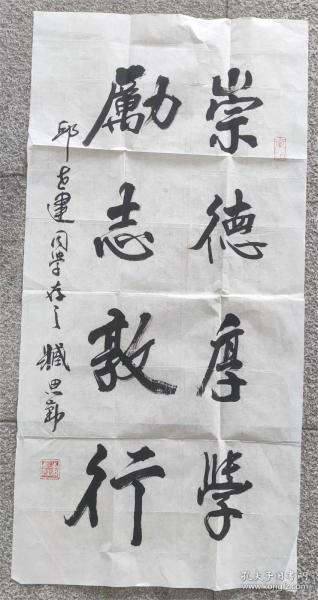 崇德厚學
勵志敦行
邱志建同学存之 臧思前
孔夫子旧书网